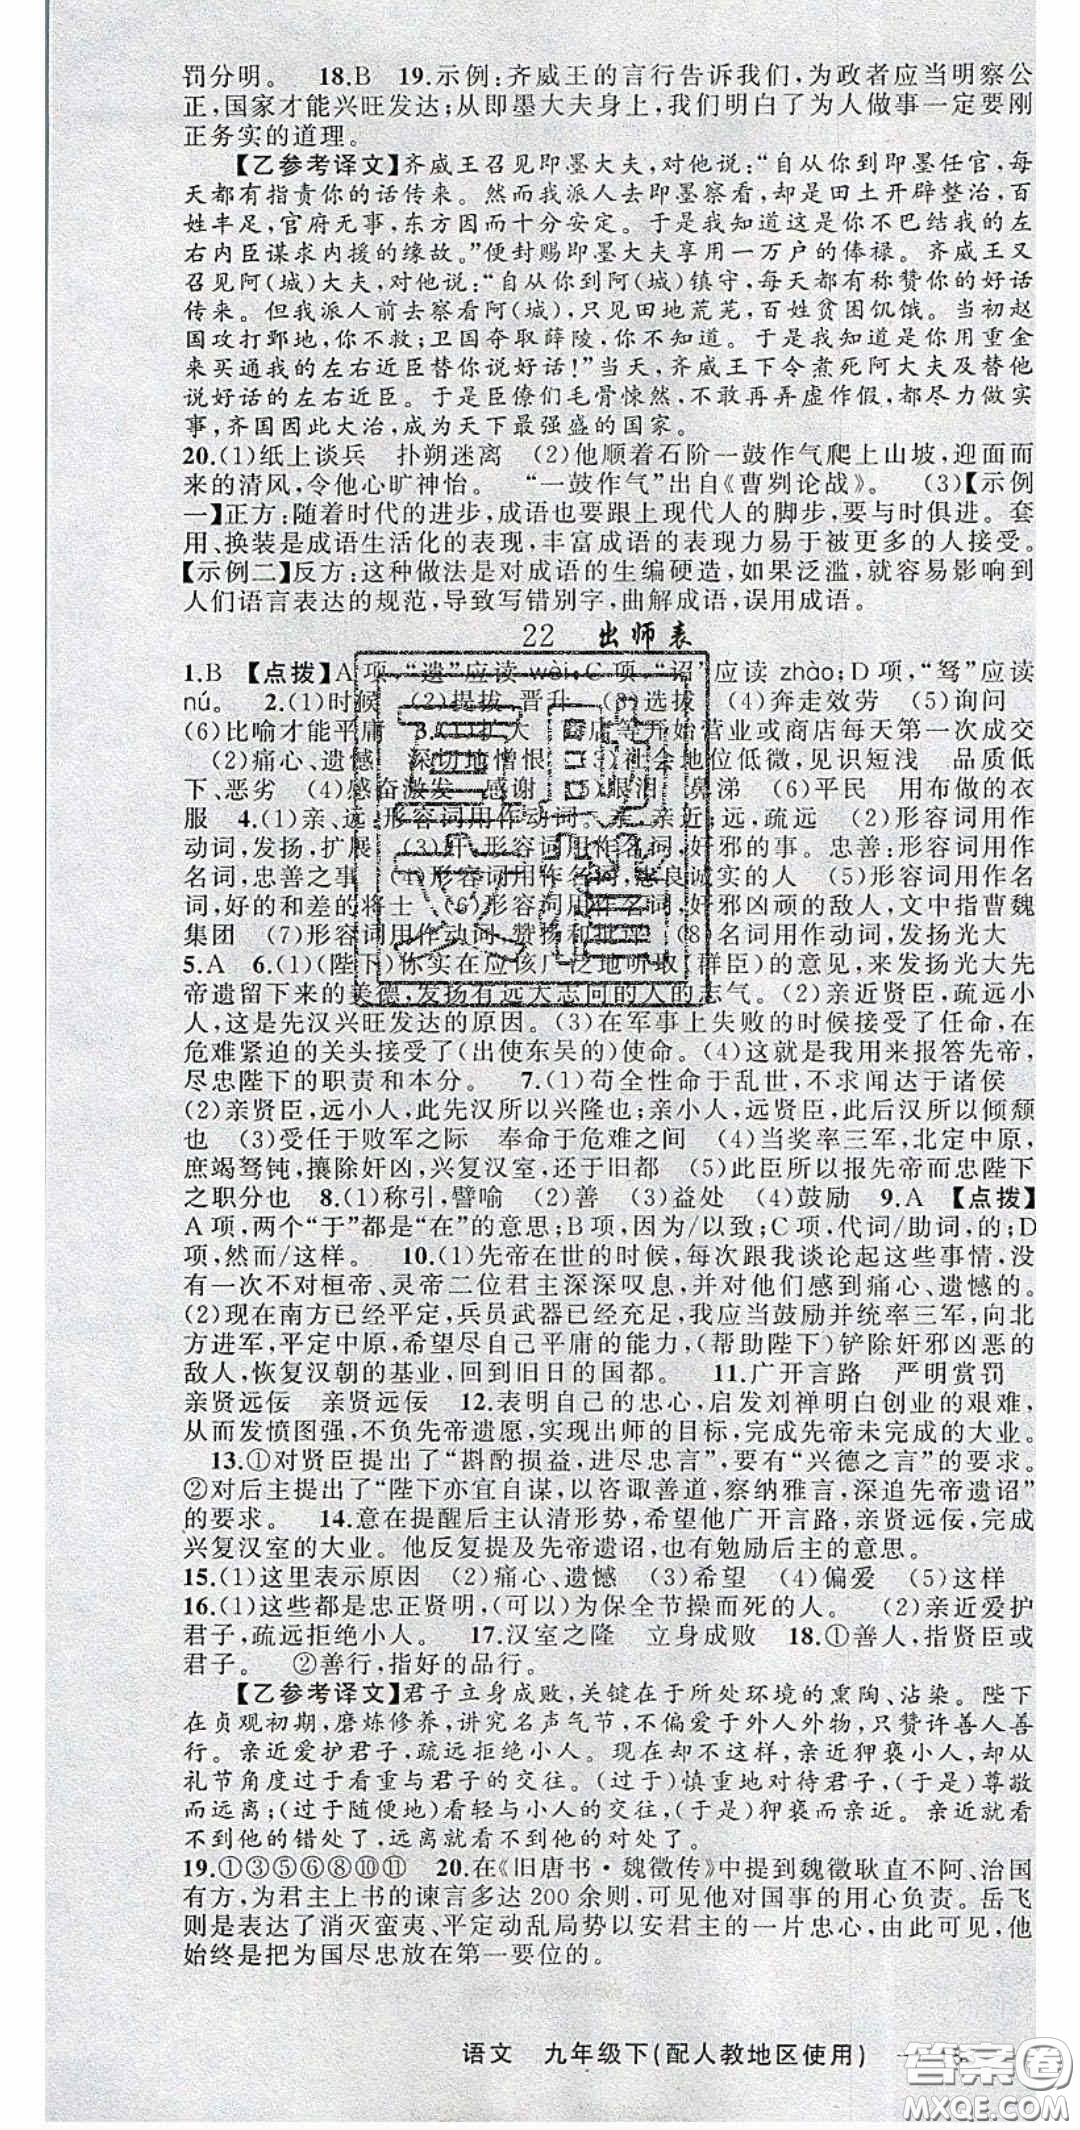 罚分明。 18.B 19.示例:齐威王的言行告诉我们,为政者应当明察公
正,国家才能兴旺发达;从即墨大夫身上,我们明白了为人做事一定要刚
正务实的道理。
【乙参考译文】齐威王召见即墨大夫,对他说:“自从你到即墨任官,每
天都有指责你的话传来。然而我派人去即墨察看,却是田土开辟整治,百
姓丰足,官府无事,东方因而十分安定。于是我知道这是你不巴结我的左
右内臣谋求内援的缘故。”便封赐即墨大夫享用一万户的俸禄。齐威王又
召见阿(城)大夫,对他说:“自从你到阿(城)镇守,每天都有称赞你的好话
传来。但我派人前去察看阿(城),只见田地荒芜,百姓贫困饥饿。当初赵
国攻打鄄地,你不救;卫国夺取薛陵,你不知道。于是我知道你用重金
来买通我的左右近臣替你说好话!”当天,齐威王下令煮死阿大夫及替他
说好话的左右近臣。于是臣僚们毛骨悚然,不敢再弄虚作假,都尽力做实
事,齐国因此大治,成为天下最强盛的国家。
20.(1)纸上谈兵 扑朔迷离 (2)他顺着石阶一鼓作气爬上山坡,迎面而
来的清风,令他心旷神怡。 “一鼓作气”出自《曹刿论战》。 (3)【示例
一】正方:随着时代的进步,成语也要跟上现代人的脚步,要与时俱进。套
用、换装是成语生活化的表现,丰富成语的表现力易于被更多的人接受。
【示例二】反方:这种做法是对成语的生编硬造,如果泛滥,就容易影响到
人们语言表达的规范,导致写错别字,曲解成语,误用成语。
22 出师表
1.B 【点拨】A项,“遗”应读 wèi;C项,“诏”应读 zhào;D项,“驽”应读
nú。 2.(1)时候 (2)提拔 晋升 (3)选拔 (4)奔走效劳 (5)询问
(6)比喻才能平庸 3.(1)扩大 商店等开始营业或商店每天第一次成交
(2)痛心、遗憾 深切地憎恨 (3)社会地位低微,见识短浅 品质低
下、恶劣 (4)感奋激发 感谢 (5)眼泪 鼻涕 (6)平民 用布做的衣
服 4.(1)亲、远:形容词用作动词。亲,亲近;远,疏远 (2)形容词用作
动词,发扬,扩展 (3)奸:形容词用作名词,奸邪的事。忠善:形容词用作
名词,忠善之事 (4)形容词用作名词,忠良诚实的人 (5)形容词用作名
词,好的和差的将士 (6)形容词用作名词,奸邪凶顽的敌人,文中指曹魏
集团 (7)形容词用作动词,赞扬和批评 (8)名词用作动词,发扬光大
5.A 6.(1)(陛下)你实在应该广泛地听取(群臣)的意见,来发扬光大先
帝遗留下来的美德,发扬有远大志向的人的志气。(2)亲近贤臣,疏远小
人,这是先汉兴旺发达的原因。(3)在军事上失败的时候接受了任命,在
危难紧迫的关头接受了(出使东吴的)使命。(4)这就是我用来报答先帝,
尽忠陛下的职责和本分。 7.(1)苟全性命于乱世,不求闻达于诸侯
(2)亲贤臣,远小人,此先汉所以兴隆也;亲小人,远贤臣,此后汉所以倾颓
也 (3)受任于败军之际 奉命于危难之间 (4)当奖率三军,北定中原,
庶竭驽钝,攘除奸凶,兴复汉室,还于旧都 (5)此臣所以报先帝而忠陛下
之职分也 8.(1)称引,譬喻 (2)善 (3)益处 (4)鼓励 9.A 【点拨】
A项,两个“于”都是“在”的意思;B项,因为/以致;C项,代词/助词,的;D
项,然而/这样。 10.(1)先帝在世的时候,每次跟我谈论起这些事情,没
有一次不对桓帝、灵帝二位君主深深叹息,并对他们感到痛心、遗憾的。
(2)现在南方已经平定,兵员武器已经充足,我应当鼓励并统率三军,向北
方进军,平定中原,希望尽自己平庸的能力,(帮助陛下)铲除奸邪凶恶的
敌人,恢复汉朝的基业,回到旧日的国都。 11.广开言路 严明赏罚
亲贤远佞 亲贤远佞 12.表明自己的忠心,启发刘禅明白创业的艰难,
从而发愤图强,不负先帝遗愿,实现出师的目标,完成先帝未完成的大业。
13.①对贤臣提出了“斟酌损益,进尽忠言”,要有“兴德之言”的要求。
②对后主提出了“陛下亦宜自谋,以咨诹善道,察纳雅言,深追先帝遗诏”
的要求。 14.意在提醒后主认清形势,希望他广开言路,亲贤远佞,完成
兴复汉室的大业。他反复提及先帝遗诏,也有勉励后主的意思。
15.(1)这里表示原因 (2)痛心、遗憾 (3)希望 (4)偏爱 (5)这样
16.(1)这些都是忠正贤明,(可以)为保全节操而死的人。 (2)亲近爱护
君子,疏远拒绝小人。 17.汉室之隆 立身成败 18.①善人,指贤臣或
君子。 ②善行,指好的品行。
【乙参考译文】君子立身成败,关键在于所处环境的熏陶、沾染。陛下
在贞观初期,磨炼修养,讲究名声气节,不偏爱于外人外物,只赞许善人善
行。亲近爱护君子,疏远拒绝小人。现在却不这样,亲近狎亵小人,却从
礼节角度过于看重与君子的交往。(过于)慎重地对待君子,(于是)尊敬
而远离;(过于随便地)看轻与小人的交往,(于是)狎亵而亲近。亲近就看
不到他的错处了,远离就看不到他的对处了。
19.①③⑤⑥⑧⑩⑪ 20.在《旧唐书·魏徵传》中提到魏徵耿直不阿、治国
有方,为君主上书的谏言多达200余则,可见他对国事的用心负责。岳飞
则是表达了消灭蛮夷、平定动乱局势以安君主的一片忠心,由此可见,他
始终是把为国尽忠放在第一要位的。
语文 九年级下(配人教地区使用)
答案圈
MXQE.COM